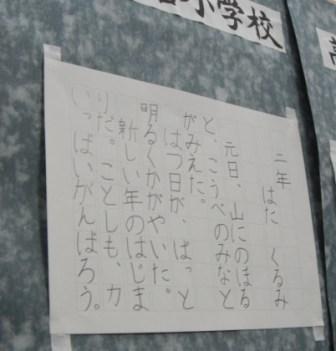 小学校
二年 はた くるみ
元日、山にのぼる
と、こうべのみなと
がみえた。
はつ日が、ぱっと
明るくかがやいた。
新しい年のはじま
りだ。ことしも、力
いっぱいがんばろう。